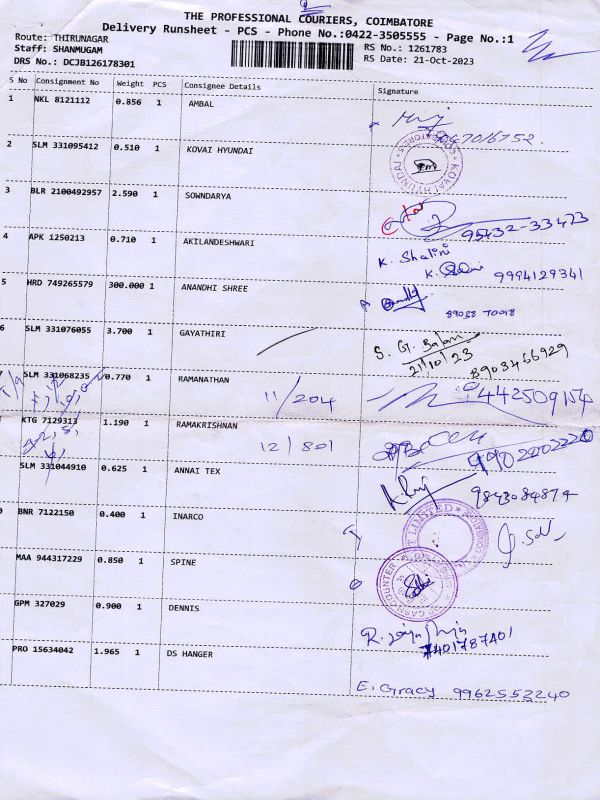 THE PROFESSIONAL COURIERS, COIMBATORE
Delivery Runsheet - PCS - Phone No.:0422-3505555 - Page No.:1
Route: THIRUNAGAR
Staff: SHANMUGAM
DRS No.: DCJB126178301
RS No.: 1261783
RS Date: 21-Oct-2023
S No Consignment No Weight PCS Consignee Details Signature
1 NKL 8121112 0.856 1 AMBAL
2 SLM 331095412 0.510 1 KOVAI HYUNDAI
KOVAI HYUNDAI
3 BLR 2100492957 2.590 1 SOWNDARYA
95432-33473
4 APK 1250213 0.710 1 AKILANDESHWARI K. Shalini
9994129341
5 HRD 749265579 300.000 1 ANANDHI SHREE
89038 70018
6 SLM 331076055 3.700 1 GAYATHIRI S. G. Balan
21/10/23 8903466929
7 SLM 331068235 0.770 1 RAMANATHAN 11/204
KTG 7129313 1.190 1 RAMAKRISHNAN 12/801
SLM 331044910 0.625 1 ANNAI TEX
9843084874
BNR 7122150 0.400 1 INARCO
LIMITED
MAA 944317229 0.850 1 SPINE
CASH COUNTER
GPM 327029 0.900 1 DENNIS
7401787401
PRO 15634042 1.965 1 DS HANGER
E. Gracy 9962552240